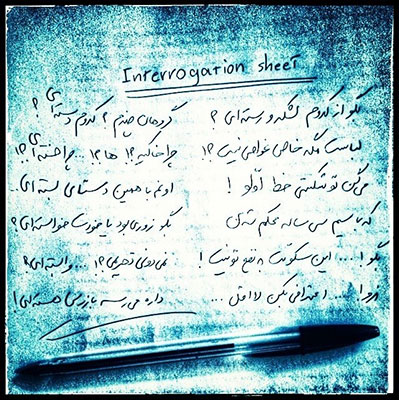 Interrogation sheet
بگو از کدوم لشکر و رسته‌ای ؟ گروهان چندم ؟ کدوم دسته‌ای ؟
لباست مگه خاص غواصی نیست ؟! چرا خاکیه ؟! ها ؟! ... چرا خسته‌ای ؟!
می‌گن تو شکستی خط اوّلو ! اونم با همین دستای بسته‌ای...
که با سیم سی ساله محکم شدن بگو زوری بود یا خودت خواسته‌ای ؟
بگو !... این سکوتت به نفع تو نیست ! نمی‌دونی تحریمی ؟! ... وابسته‌ای ؟
... اعترافی بکن لااقل ... داره می‌رسه بازرس هسته‌ای !